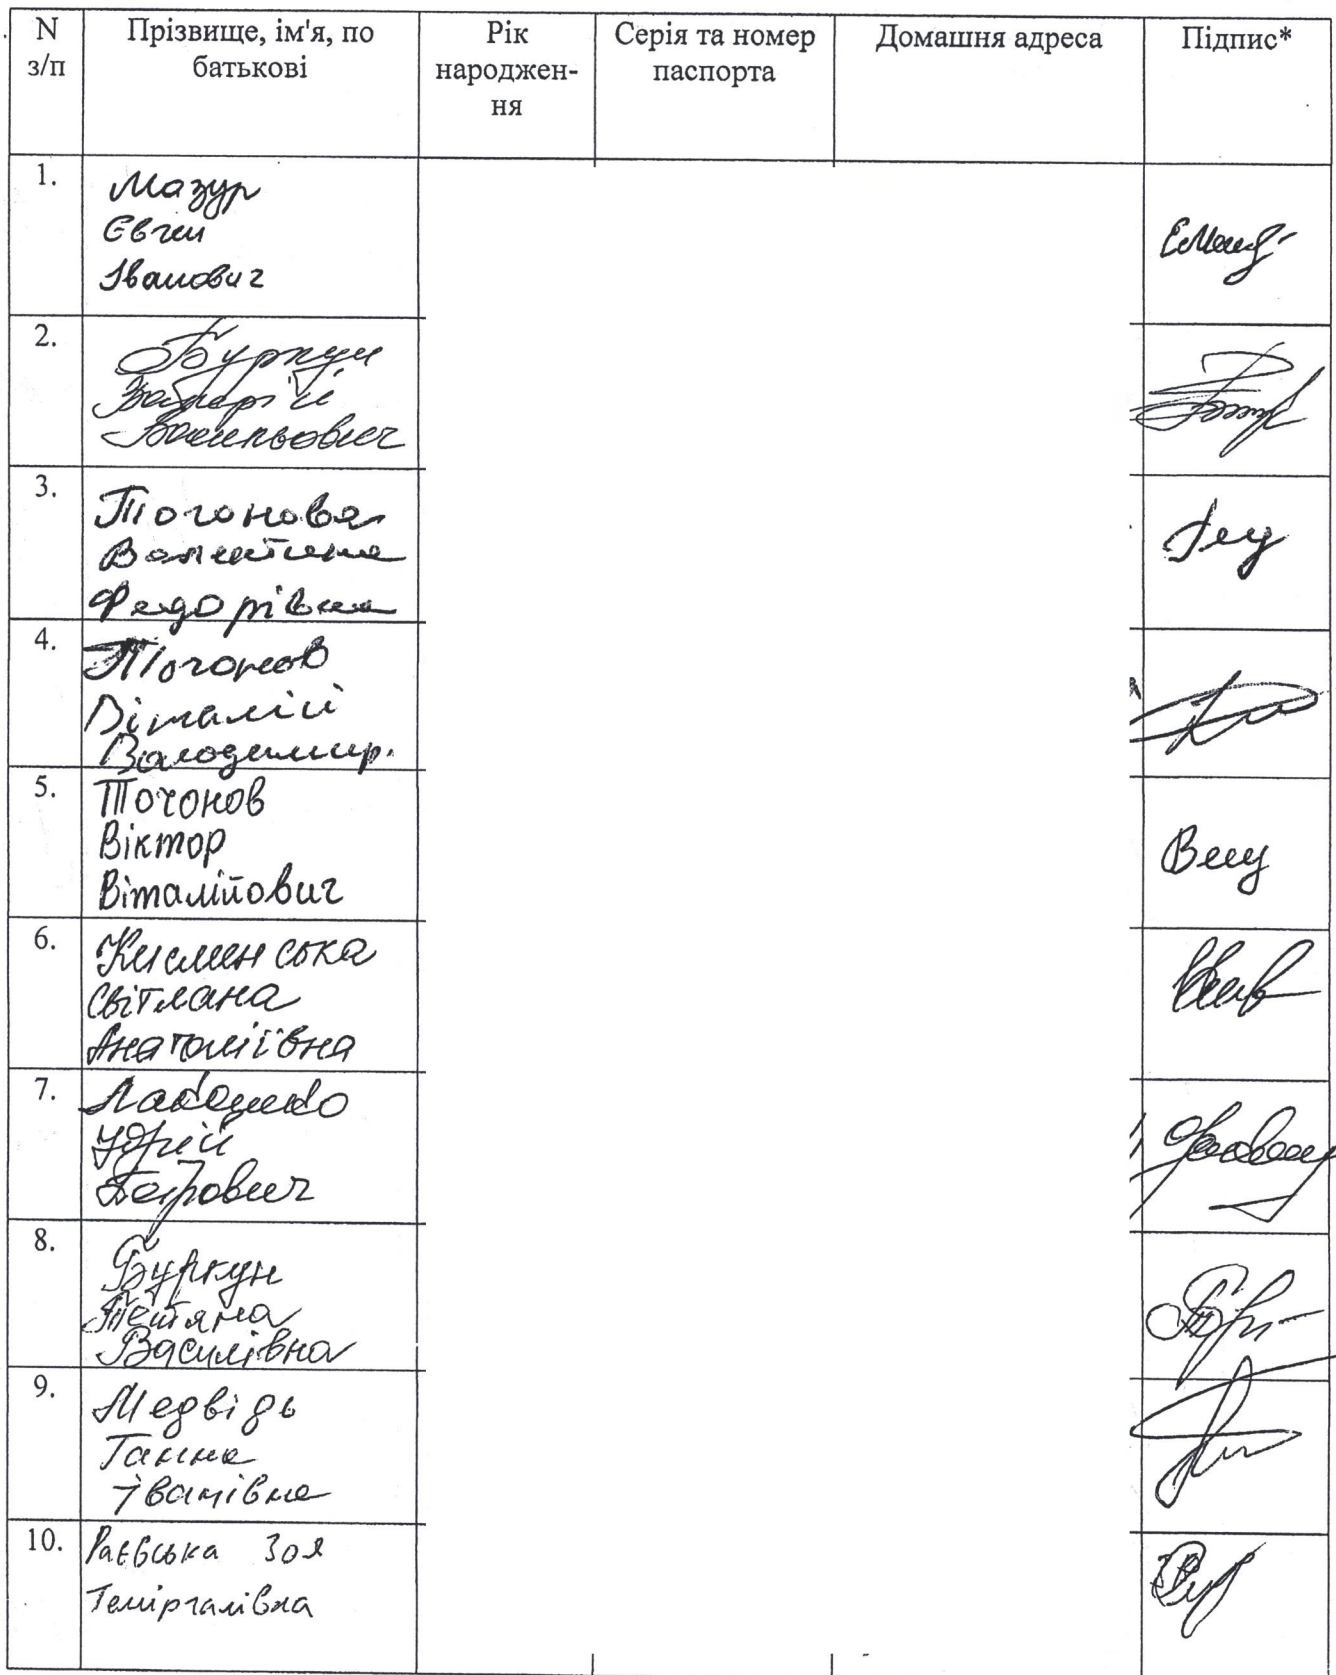 N
з/п
Прізвище, ім'я, по
батькові
Рік
народжен-
ня
Серія та номер
паспорта
Домашня адреса
Підпис*
1.
Мазур
Євген
Іванович
2.
Буркун
Валерій
Васильович
3.
Точонова
Валентина
Федорівна
4.
Точонов
Віталій
Володимир.
5.
Точонов
Віктор
Віталійович
6.
Світлана
Анатоліївна
7.
Юрій
Петрович
8.
Буркун
Тетяна
Василівна
9.
Медвідь
Ганна
Іванівна
10.
Раєвська Зоя
Теміргалівна